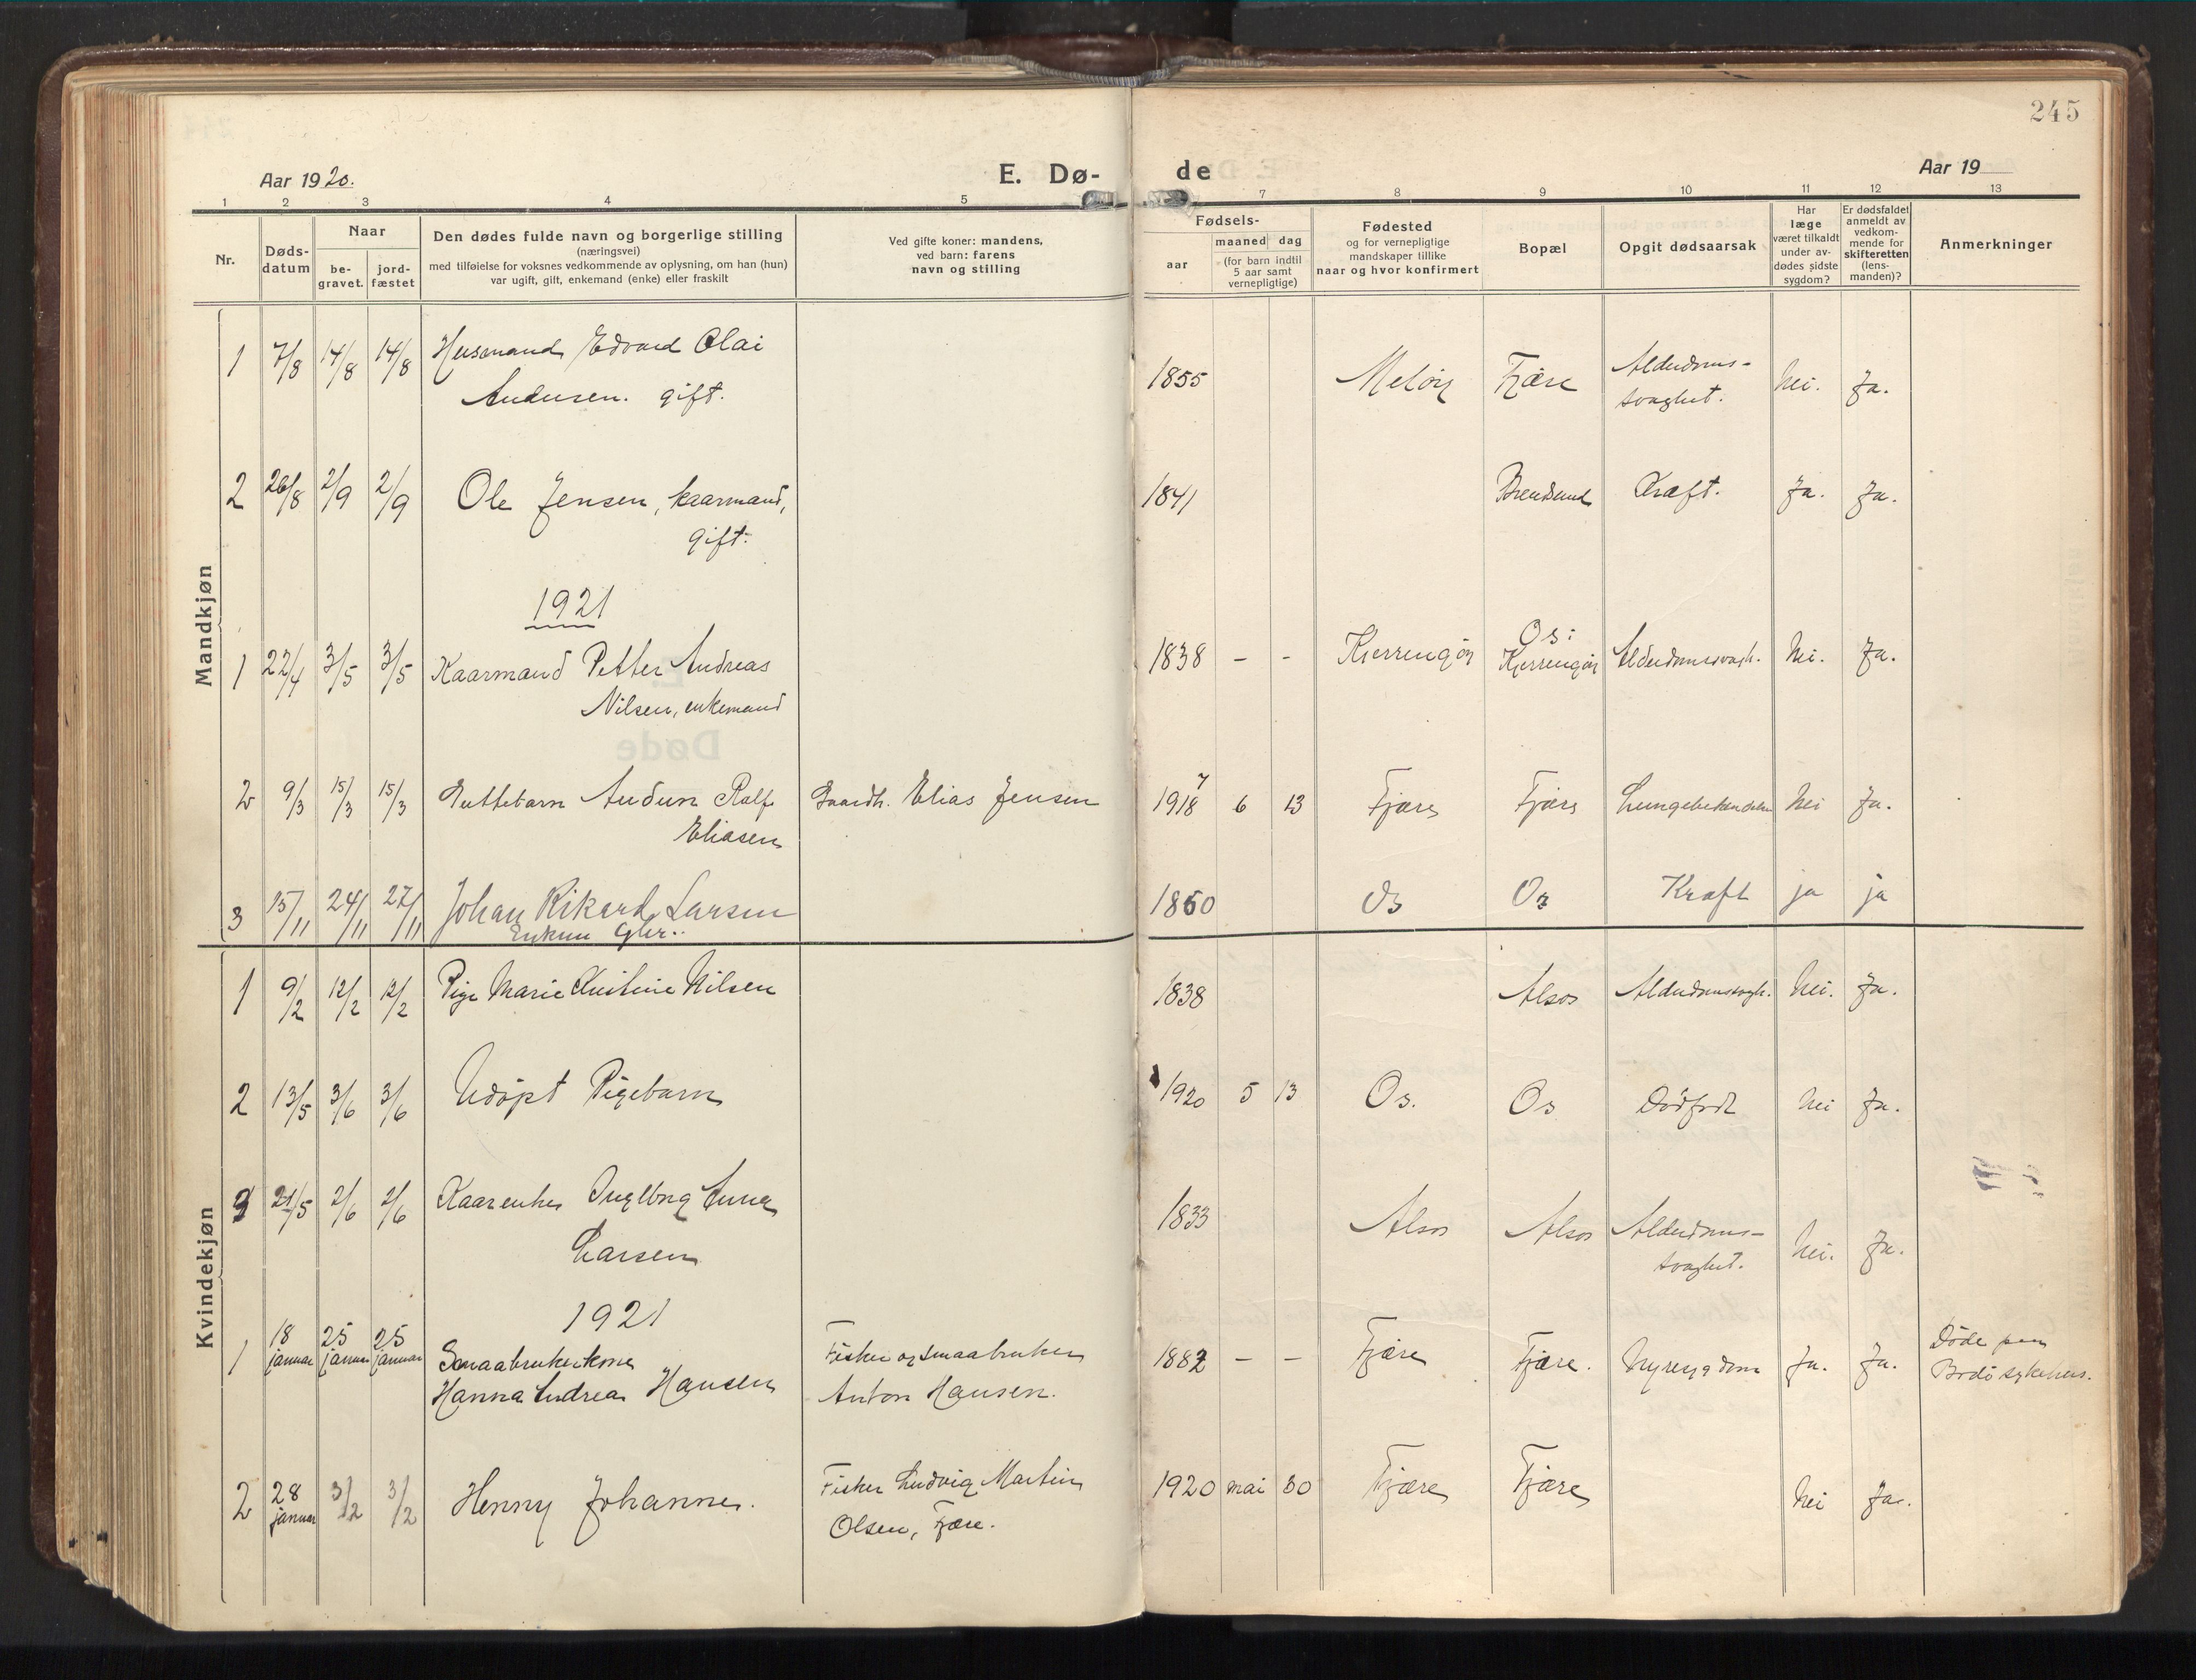 245
Aar 1920.
E. Dø-
de
Aar 19
1 2 3 4 5 7 8 9 10 11 12 13
Nr.
Døds-
datum
Naar
be-
gravet.
jord-
fæstet
Den dødes fulde navn og borgerlige stilling
(næringsvei)
med tilføielse for voksnes vedkommende av oplysning, om han (hun)
var ugift, gift, enkemand (enke) eller fraskilt
Ved gifte koner: mandens,
ved barn: farens
navn og stilling
Fødsels-
aar
maaned dag
(for barn indtil
5 aar samt
vernepligtige)
Fødested
og for vernepligtige
mandskaper tillike
naar og hvor konfirmert
Bopæl
Opgit dødsaarsak
Har
læge
været tilkaldt
under av-
dødes sidste
sygdom?
Er dødsfaldet
anmeldt av
vedkom-
mende for
skifteretten
(lens-
manden)?
Anmerkninger
Mandkjøn
1 7/8 14/8 14/8 Husmand Edvard Olai
Andersen. gift.
1855 Meløy Fjære Alderdoms-
svaghet. Nei. Ja.
2 26/8 2/9 2/9 Ole Jensen, kaarmand,
gift.
1841 Kræft. Ja. Ja.
1921
1 22/4 3/5 3/5 Kaarmand Petter Andreas
Nilsen, enkemand
1838 - - Kjerringøy Os i
Kjerringøy Alderdomssvagh. Nei. Ja.
2 9/3 15/3 15/3 Guttebarn Audun Ralf
Eliasen
Gaardb. Elias Jensen
7
1918 6 13 Fjære Fjære Lungebetændelse Nei Ja.
3 15/11 24/11 27/11 Johan Rikard Larsen
1860 Os Os Kræft ja ja
Kvindekjøn
1 9/2 12/2 12/2 Pige Marie Kristine Nilsen
1838 Alsos Alderdomssvagh. Nei. Ja.
2 13/5 3/6 3/6 Udøpt Pigebarn
1920 5 13 Os. Os Dødfødt Nei Ja.
3 21/5 2/6 2/6 Kaarenke Ingeborg Anna
Larsen
1833 Alsos Alsos Alderdoms-
svaghet. Nei. Ja.
1921
1 18 januar 25 januar 25 januar Smaabrukerkone
Hanna Andrea Hansen
Fisker og smaabruker
Anton Hansen.
1882 - - Fjære Fjære. Nyresygdom Ja. Ja. Døde paa
Bodø sykehus.
2 28 januar 3/2 3/2 Henny Johanne.
Fisker Ludvig Martin
Olsen, Fjære.
1920 mai 30 Fjære Fjære Nei Ja.